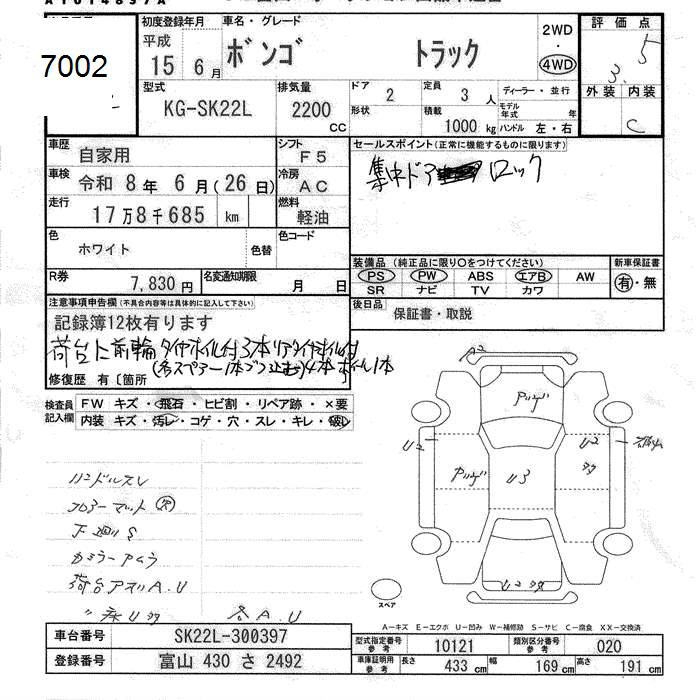 7002
初度登録年月 車名・グレード
平成
15 6月 ボンゴ トラック
2WD
・
4WD
評価点
3.5
外装 内装
C
型式 排気量 ドア 2 定員 3人 ディーラー・並行
KG-SK22L 2200 cc 形状 積載 1000kg モデル年式 年
ハンドル 左・右
車歴 自家用 シフト F5
車検 令和 8年 6月(26日) 冷房 AC
走行 17万8千685 km 燃料 軽油
色 ホワイト 色替 色コード
R券 7,830円 名変通知期限 月 日
セールスポイント(正常に機能するものに限ります)
集中ドア ロック
装備品(純正品に限り○をつけてください) 新車保証書
PS PW ABS エアB AW 有・無
SR ナビ TV カワ
後日品 保証書・取説
注意事項申告欄(不具合内容等は具体的に記入して下さい)
記録簿12枚有ります
荷台上前輪タイヤホイル付3本リアタイヤホイル付
4本ホイル1本
修復歴 有〔箇所
検査員記入欄
FW キズ・飛石・ヒビ割・リペア跡・×要
内装 キズ・汚レ・コゲ・穴・スレ・キレ・破レ
ハンドルスレ
フロアーマット欠
下廻りS
カミラー
荷台アオリA.U
〃床U
各A.U
A2
U2
U2
U3
U2
スペア
A-キズ E-エクボ U-凹み W-補修跡 S-サビ C-腐食 XX-交換済
車台番号 SK22L-300397
登録番号 富山 430 さ 2492
型式指定番号 参考 10121 類別区分番号 参考 020
車庫証明用 参考 長さ 433cm 幅 169cm 高さ 191cm